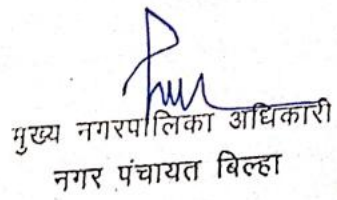 मुख्य नगरपालिका अधिकारी
नगर पंचायत बिल्हा